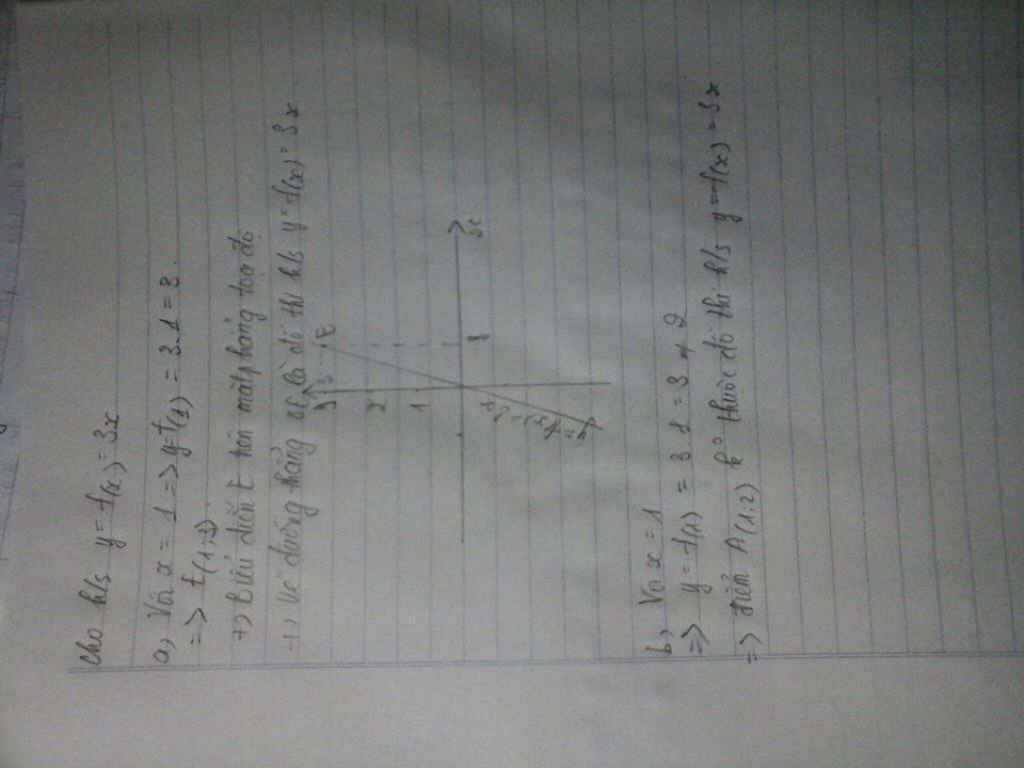 Cho h/s y = f(x) = 3x
a, Với x = 1 => y = f(1) = 3.1 = 3.
=> E(1;3)
+) Biểu diễn E trên mặt phẳng tọa độ
+) Vẽ đường thẳng là đồ thị h/s y = f(x) = 3x
3
3
E
2
1
1
x
y = f(x) = 3x
b, Với x = 1
=> y = f(1) = 3.1 = 3 ≠ 2
=> điểm A(1;2) k° thuộc đồ thị h/s y = f(x) = 3x